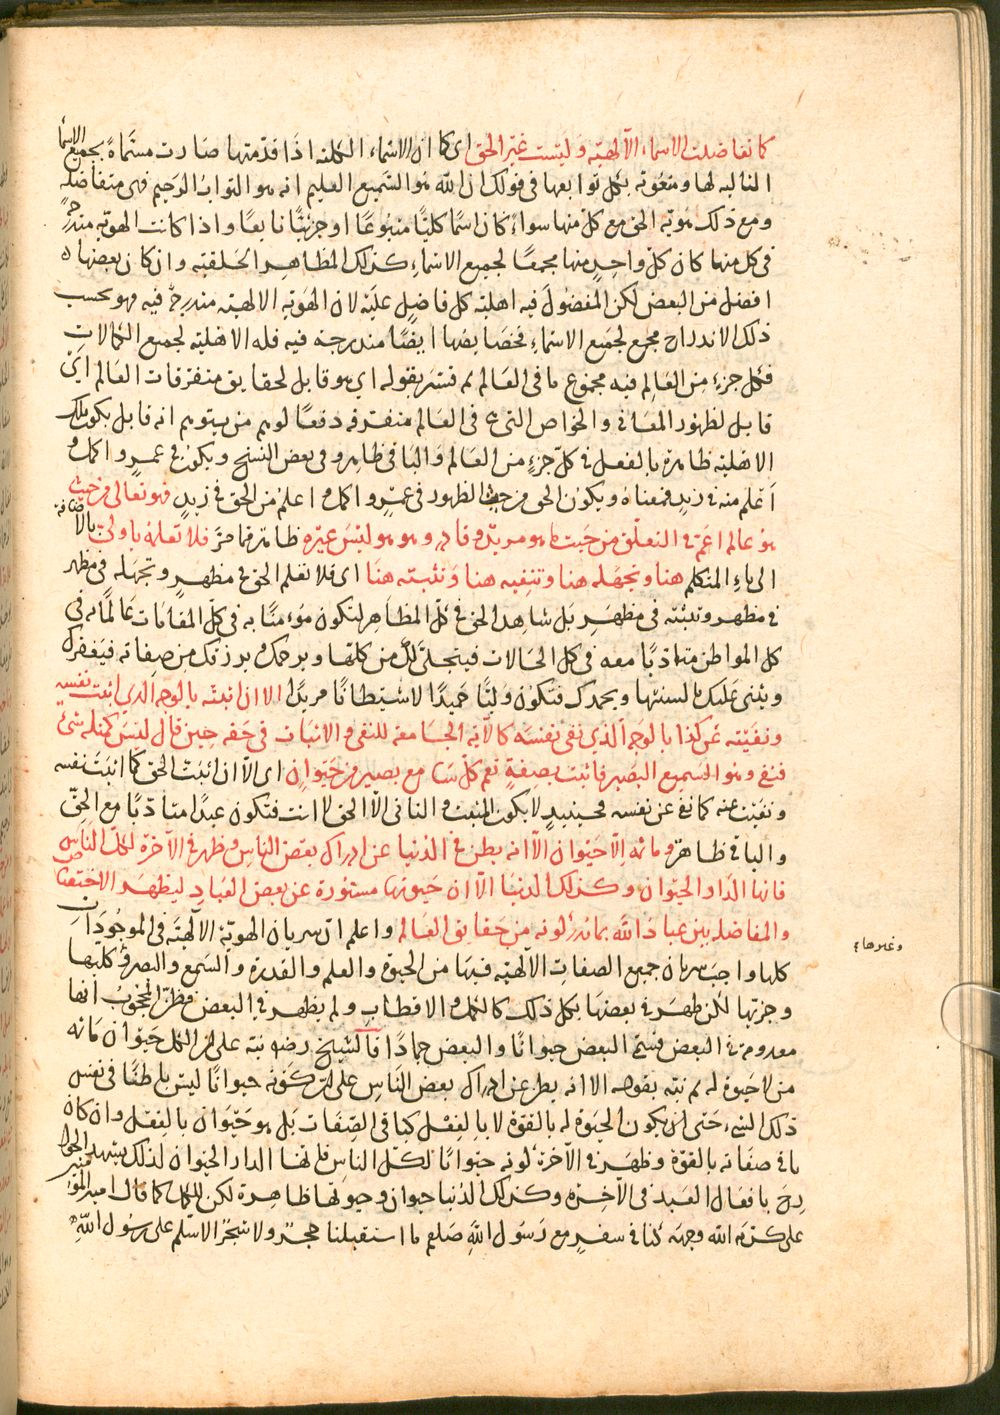 كما تفاضلت الاسماء الآلهية وليست غير الحق اى كما ان الاسماء الكلية اذا قدمتها صارت مسماة بجميع الاسماء
التالية لها ومنعوتة بكل توابعها فى قولك ان الله هو السميع العليم انه هو التواب الرحيم فهى متفاضلة
ومع ذلك هوية الحق مع كل منها سواء كان اسما كليا متبوعا او جزئيا تابعا واذا كانت الهوية مندرجة
فى كل منها كان كل واحد منها مجمعا لجميع الاسماء كذلك المظاهر الخلقية وان كان بعضها
افضل من البعض لكن المفضول فيه اهلية كل فاضل عليه لان الهوية الالهية مندرجة فيه فهو بحسب
ذلك الاندراج مجمع لجميع الاسماء فخصايصها ايضا مندرجة فيه فله الاهلية لجميع الكمالات
فكل جزء من العالم فيه مجموع ما فى العالم ثم فسر بقوله اى هو قابل لحقايق متفرقات العالم اى
قابل لظهور المعانى والخواص التى هى فى العالم متفرقة دفعا لوهم من يتوهم انه قابل بكون تلك
الاهلية ظاهرة بالفعل فى كل جزء من العالم والباقى ظاهر وفى بعض النسخ ويكون فى عمرو اكمل و
اعلم منه فى زيد فمعناه ويكون الحق من حيث الظهور فى عمرو اكمل و اعلم من الحق فى زيد فهو تعالى من حيث
هو عالم اعم فى التعلق من حيث ما هو مريد وقادر وهو هو ليس غيره ظاهر فما مر فلا تعلمه يا ولى بالاضافة
الى ياء المتكلم هنا وتجهله هنا وتنفيه هنا وتثبته هنا اى فلا تعلم الحق فى مظهر وتجهله فى مظهر
فى مظهر وتثبته فى مظهر بل شاهد الحق فى كل المظاهر لتكون مؤمنا به فى كل المقامات عالما به فى
كل المواطن متادبا معه فى كل الحالات فيتجلى لك من كلها ويرحمك ويرزقك من صفاته فيغفر لك
ويثنى عليك بالسنتها ويحمدك فتكون وليا حميدا لا شيطانا مريدا الا ان اثبته بالوجه الذى اثبت نفسه
ونفيته عن كذا بالوجه الذى نفى نفسه كالآية الجامعة للنفى والاثبات فى حقه حين قال ليس كمثله شئ
فنفى وهو السميع البصير فاثبت بصفة تعم كل سامع بصير من حيوان اى الا ان اثبت الحق كما اثبت نفسه
ونفيت عنه كما نفى عن نفسه فحينئذ لا يكون المثبت والنافى الا الحق لا انت فتكون عبدا متادبا مع الحق
والباقى ظاهر وما ثم الا حيوان الا انه بطن فى الدنيا عن ادراك بعض الناس وظهر فى الآخرة لكل الناس
فانها الدار الحيوان وكذلك الدنيا الا ان حيوتها مستورة عن بعض العباد ليظهر الاختصاص
والمفاضلة بين عباد الله بما يدركونه من حقايق العالم واعلم ان سريان الهوية الآلهية فى الموجودات
كلها واجب سريان جميع الصفات الآلهية فيها من الحيوة والعلم والقدرة والسمع والبصر وغيرها كليها
وجزئيها لكن ظهر فى بعضها بكل ذلك كالكمل والاقطاب ولم يظهر فى البعض فظن المحجوب انها
معدومة فى البعض فسمى البعض حيوانا والبعض جمادا فالشيخ رضه نبه على ان الكل حيوان ما ثم
من لا حيوة له ثم نبه بقوله الا انه بطن عن ادراك بعض الناس على ان كونه حيوانا ليس باطنا فى نفس
ذلك الشئ حتى ان يكون الحيوة له بالقوة لا بالفعل كباقى الصفات بل هو حيوان بالفعل وان كان
باقى صفاته بالقوة وظهر فى الآخرة كونه حيوانا لكل الناس فانها الدار الحيوان لذلك يشهد الجوارح
بافعال العبد فى الآخرة وكذلك الدنيا حيوان وحيوتها ظاهرة لكن للكمل كما قال امير المؤمنين
على كرم الله وجهه كنا فى سفر مع رسول الله صلعم ما استقبلنا حجر ولا شجر الا سلم على رسول الله
وغيرها